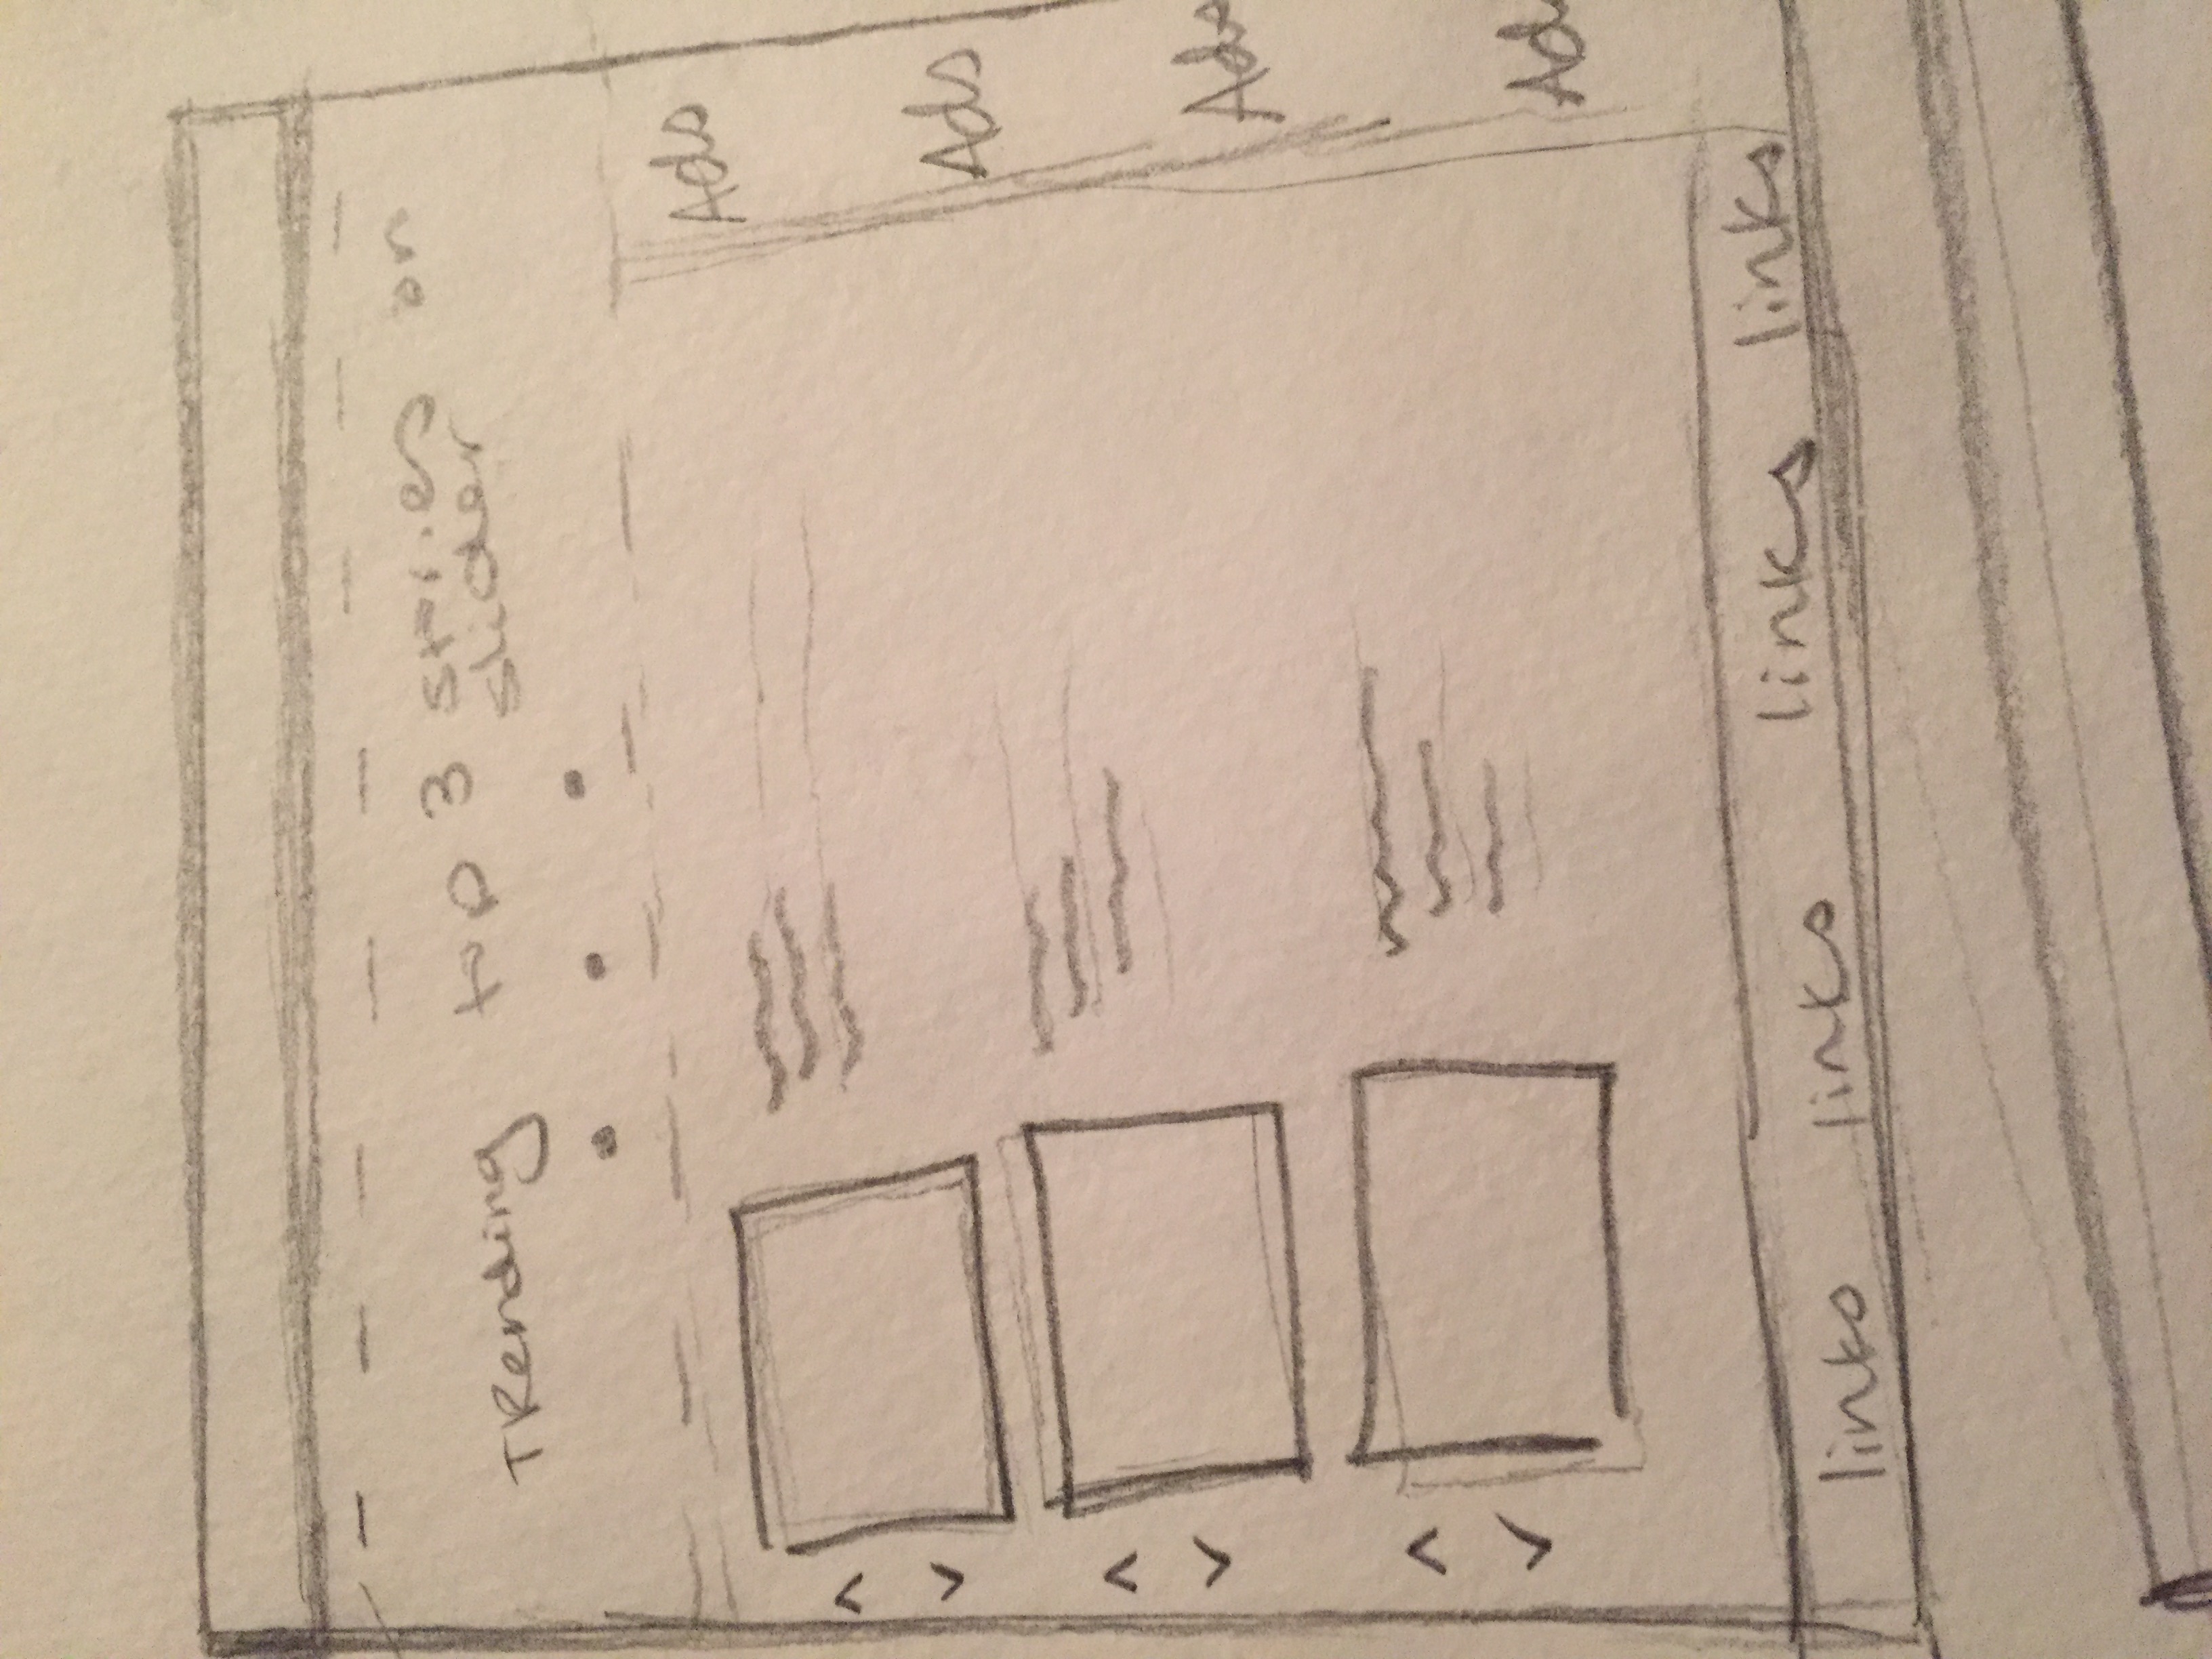 TRending top 3 stories on
slider
Ads
Ads
Ads
Ads
links links links links